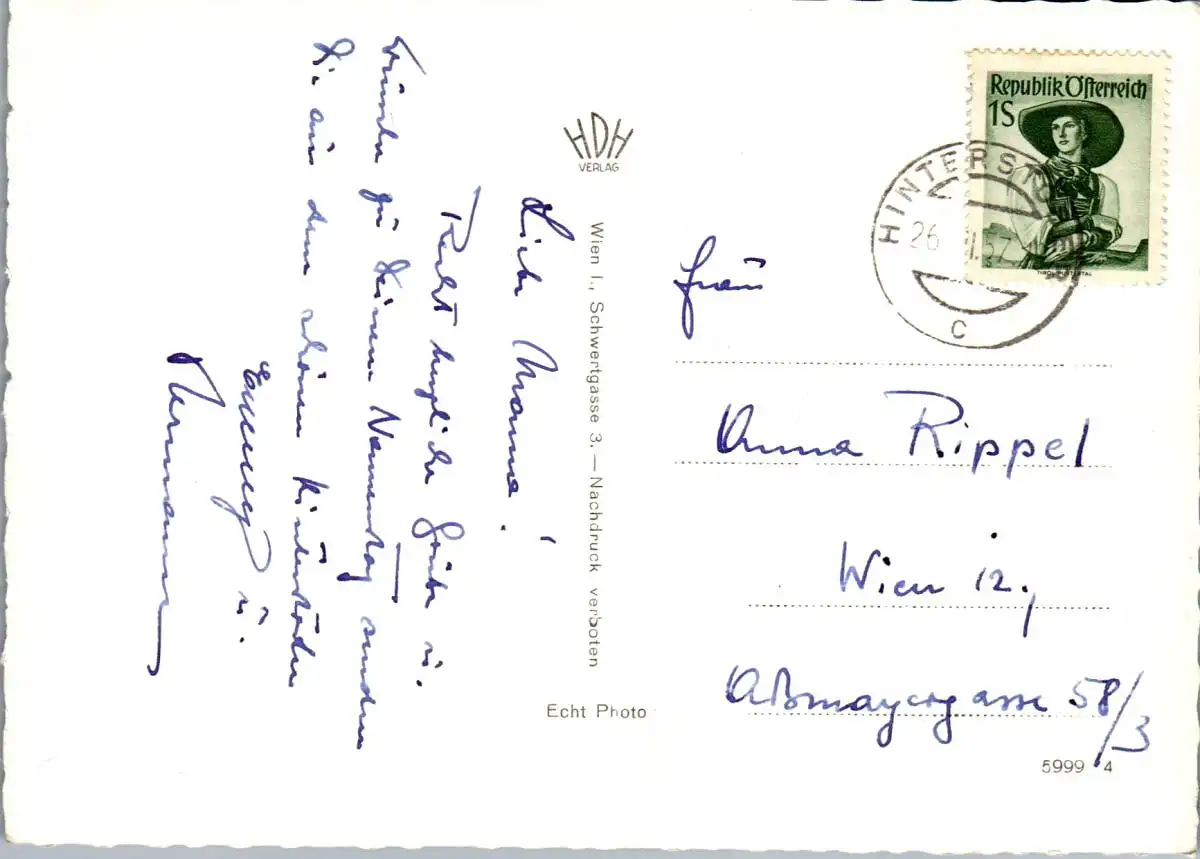 HDH
VERLAG
Republik Österreich
1S
TIROL-PUSTERTAL
HINTERSTO
26. 57
c
Liebe Mama!
Recht herzliche Grüße u.
Wünsche zu Deinem Namenstag senden
Dir aus dem schönen Hinterstoder
u.
Hermann
Wien I., Schwertgasse 3. — Nachdruck verboten
Echt Photo
Frau
Anna Rippel
Wien 12.,
Aßmayergasse 58/3
5999 4